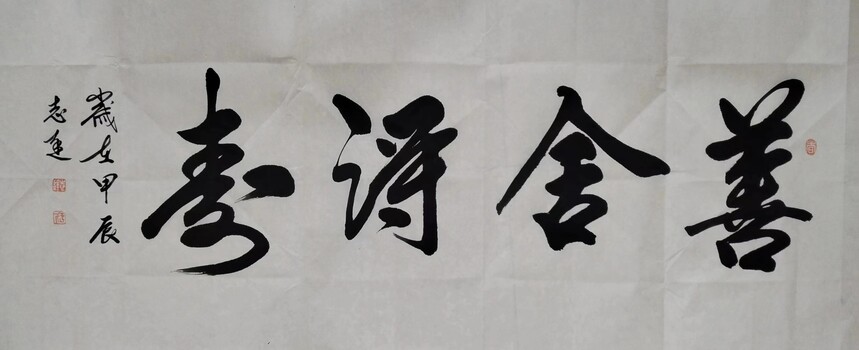 善舍得寿
歲在甲辰
志廷